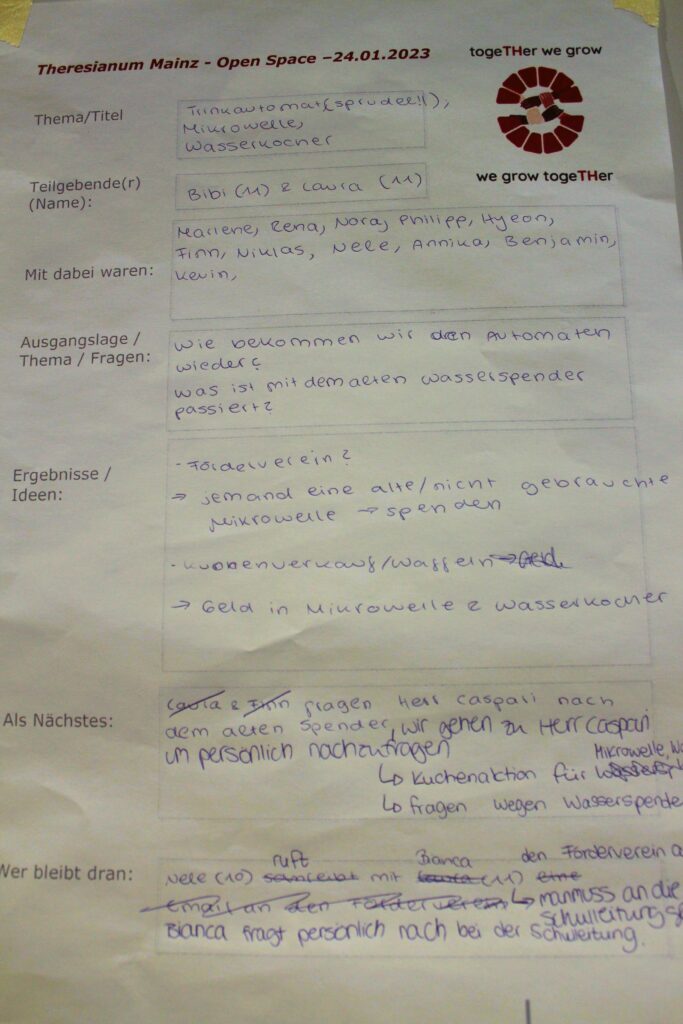 Theresianum Mainz - Open Space –24.01.2023
togeTHer we grow
we grow togeTHer
Thema/Titel
Trinkautomat(sprudel!!),
Mikrowelle,
Wasserkocher
Teilgebende(r)
(Name):
Bibi (11) & Laura (11)
Mit dabei waren:
Marlene, Rena, Nora, Philipp, Hyeon,
Finn, Niklas, Nele, Annika, Benjamin,
Kevin,
Ausgangslage /
Thema / Fragen:
Wie bekommen wir den Automaten
wieder?
was ist mit dem alten Wasserspender
passiert?
Ergebnisse /
Ideen:
- Förderverein?
→ jemand eine alte/nicht gebrauchte
Mikrowelle → spenden
- Kuchenverkauf/Waffeln → Geld
→ Geld in Mikrowelle & Wasserkocher
Als Nächstes:
Laura & Finn fragen Herr Caspari nach
dem alten Spender, wir gehen zu Herr Caspari
um persönlich nachzufragen
Mikrowelle,
↳ Kuchenaktion für
↳ fragen wegen Wasserspende
Wer bleibt dran:
ruft Bianca den Förderverein a
Nele (10) schreibt mit Laura (11) eine
Email an den Förderverein ↳ man muss an die
Schulleitung
Bianca fragt persönlich nach bei der Schulleitung.